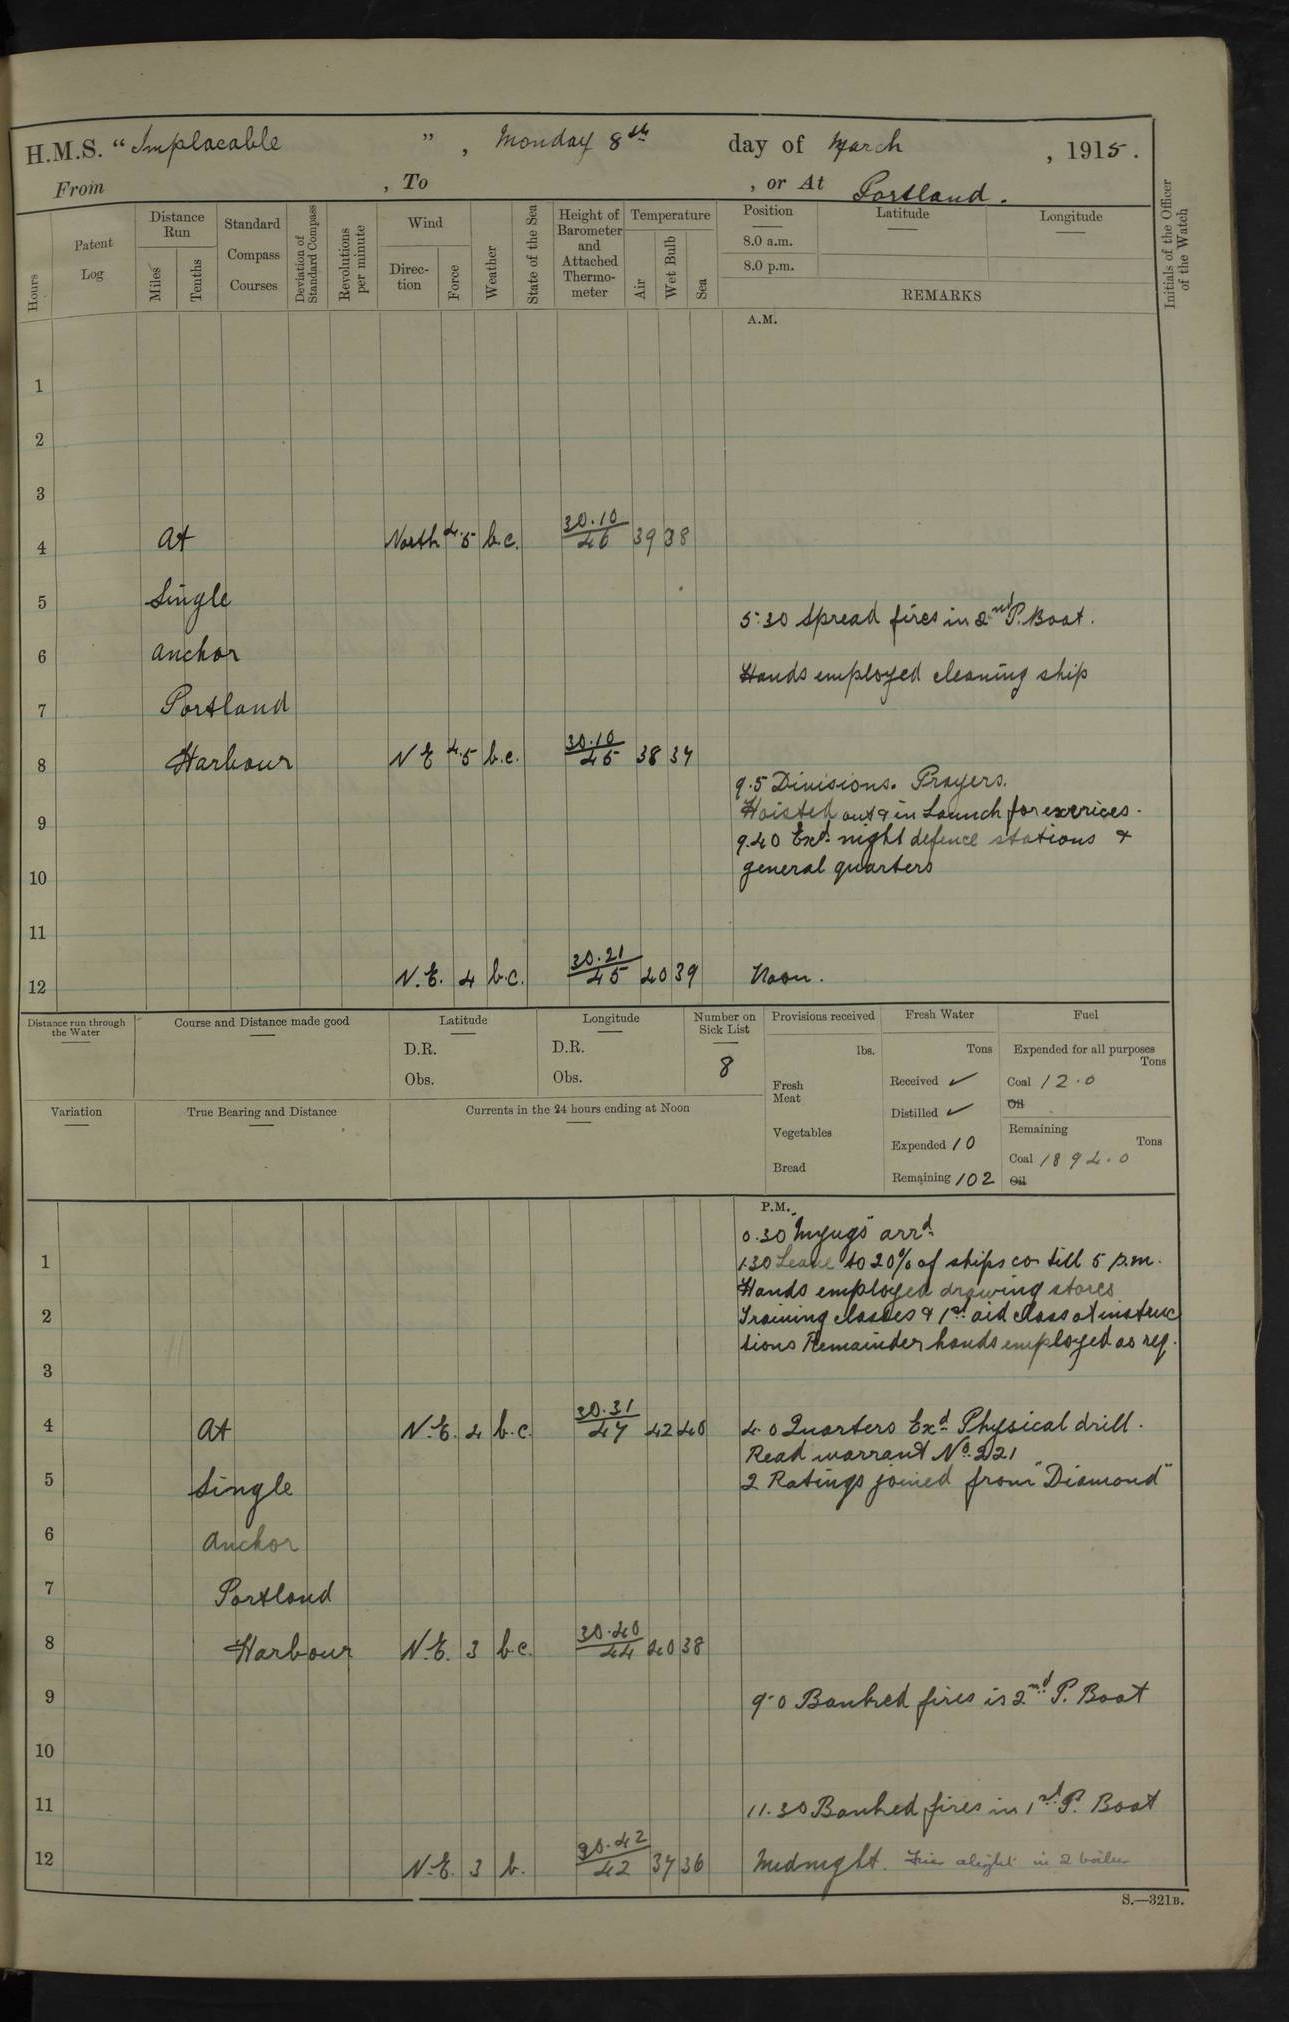 H.M.S. "Implacable", Monday 8th day of March, 1915.
From , To , or At Portland.
Hours
Patent Log
Distance Run
Miles
Tenths
Standard Compass Courses
Deviation of Standard Compass
Revolutions per minute
Wind
Direction
Force
Weather
State of the Sea
Height of Barometer and Attached Thermometer
Temperature
Air
Wet Bulb
Sea
Position
Latitude
Longitude
8.0 a.m.
8.0 p.m.
REMARKS
Initials of the Officer of the Watch
A.M.
1
2
3
4 At North 4.5 b.c. 30.10 46 39 38
5 Single
5.30 Spread fires in 2nd P. Boat.
6 anchor
Hands employed cleaning ship
7 Portland
8 Harbour N E 4.5 b.c. 30.10 45 38 37
9.5 Divisions. Prayers.
9 Hoisted out & in Launch for exerices.
9.40 Exd. night defence stations &
10 general quarters
11
12 N.E. 4 b.c. 30.21 45 40 39 Noon.
Distance run through the Water
Course and Distance made good
Latitude
D.R.
Obs.
Longitude
D.R.
Obs.
Number on Sick List
8
Provisions received
lbs.
Fresh Meat
Vegetables
Bread
Fresh Water
Tons
Received ✓
Distilled ✓
Expended 10
Remaining 102
Fuel
Expended for all purposes
Tons
Coal 12.0
Oil
Remaining
Tons
Coal 1894.0
Oil
Variation
True Bearing and Distance
Currents in the 24 hours ending at Noon
P.M.
0.30 arrd.
1 1.30 Leave to 20% of ships co till 5 p.m.
Hands employed drawing stores
2 Training classes & 1st aid class at instruc
tions Remainder hands employed as req.
3
4 At N.E. 4 b.c. 30.31 47 42 40 4.0 Quarters Exd. Physical drill.
Read warrant No. 221
5 Single 2 Ratings joined from "Diamond"
6 anchor
7 Portland
8 Harbour N.E. 3 b.c. 30.40 44 40 38
9 9.0 Banked fires in 2nd P. Boat
10
11 11.30 Banked fires in 1st P. Boat
12 N.E. 3 b. 30.42 42 37 36 Midnight. Fires alight in 2 boilers
S.—321B.